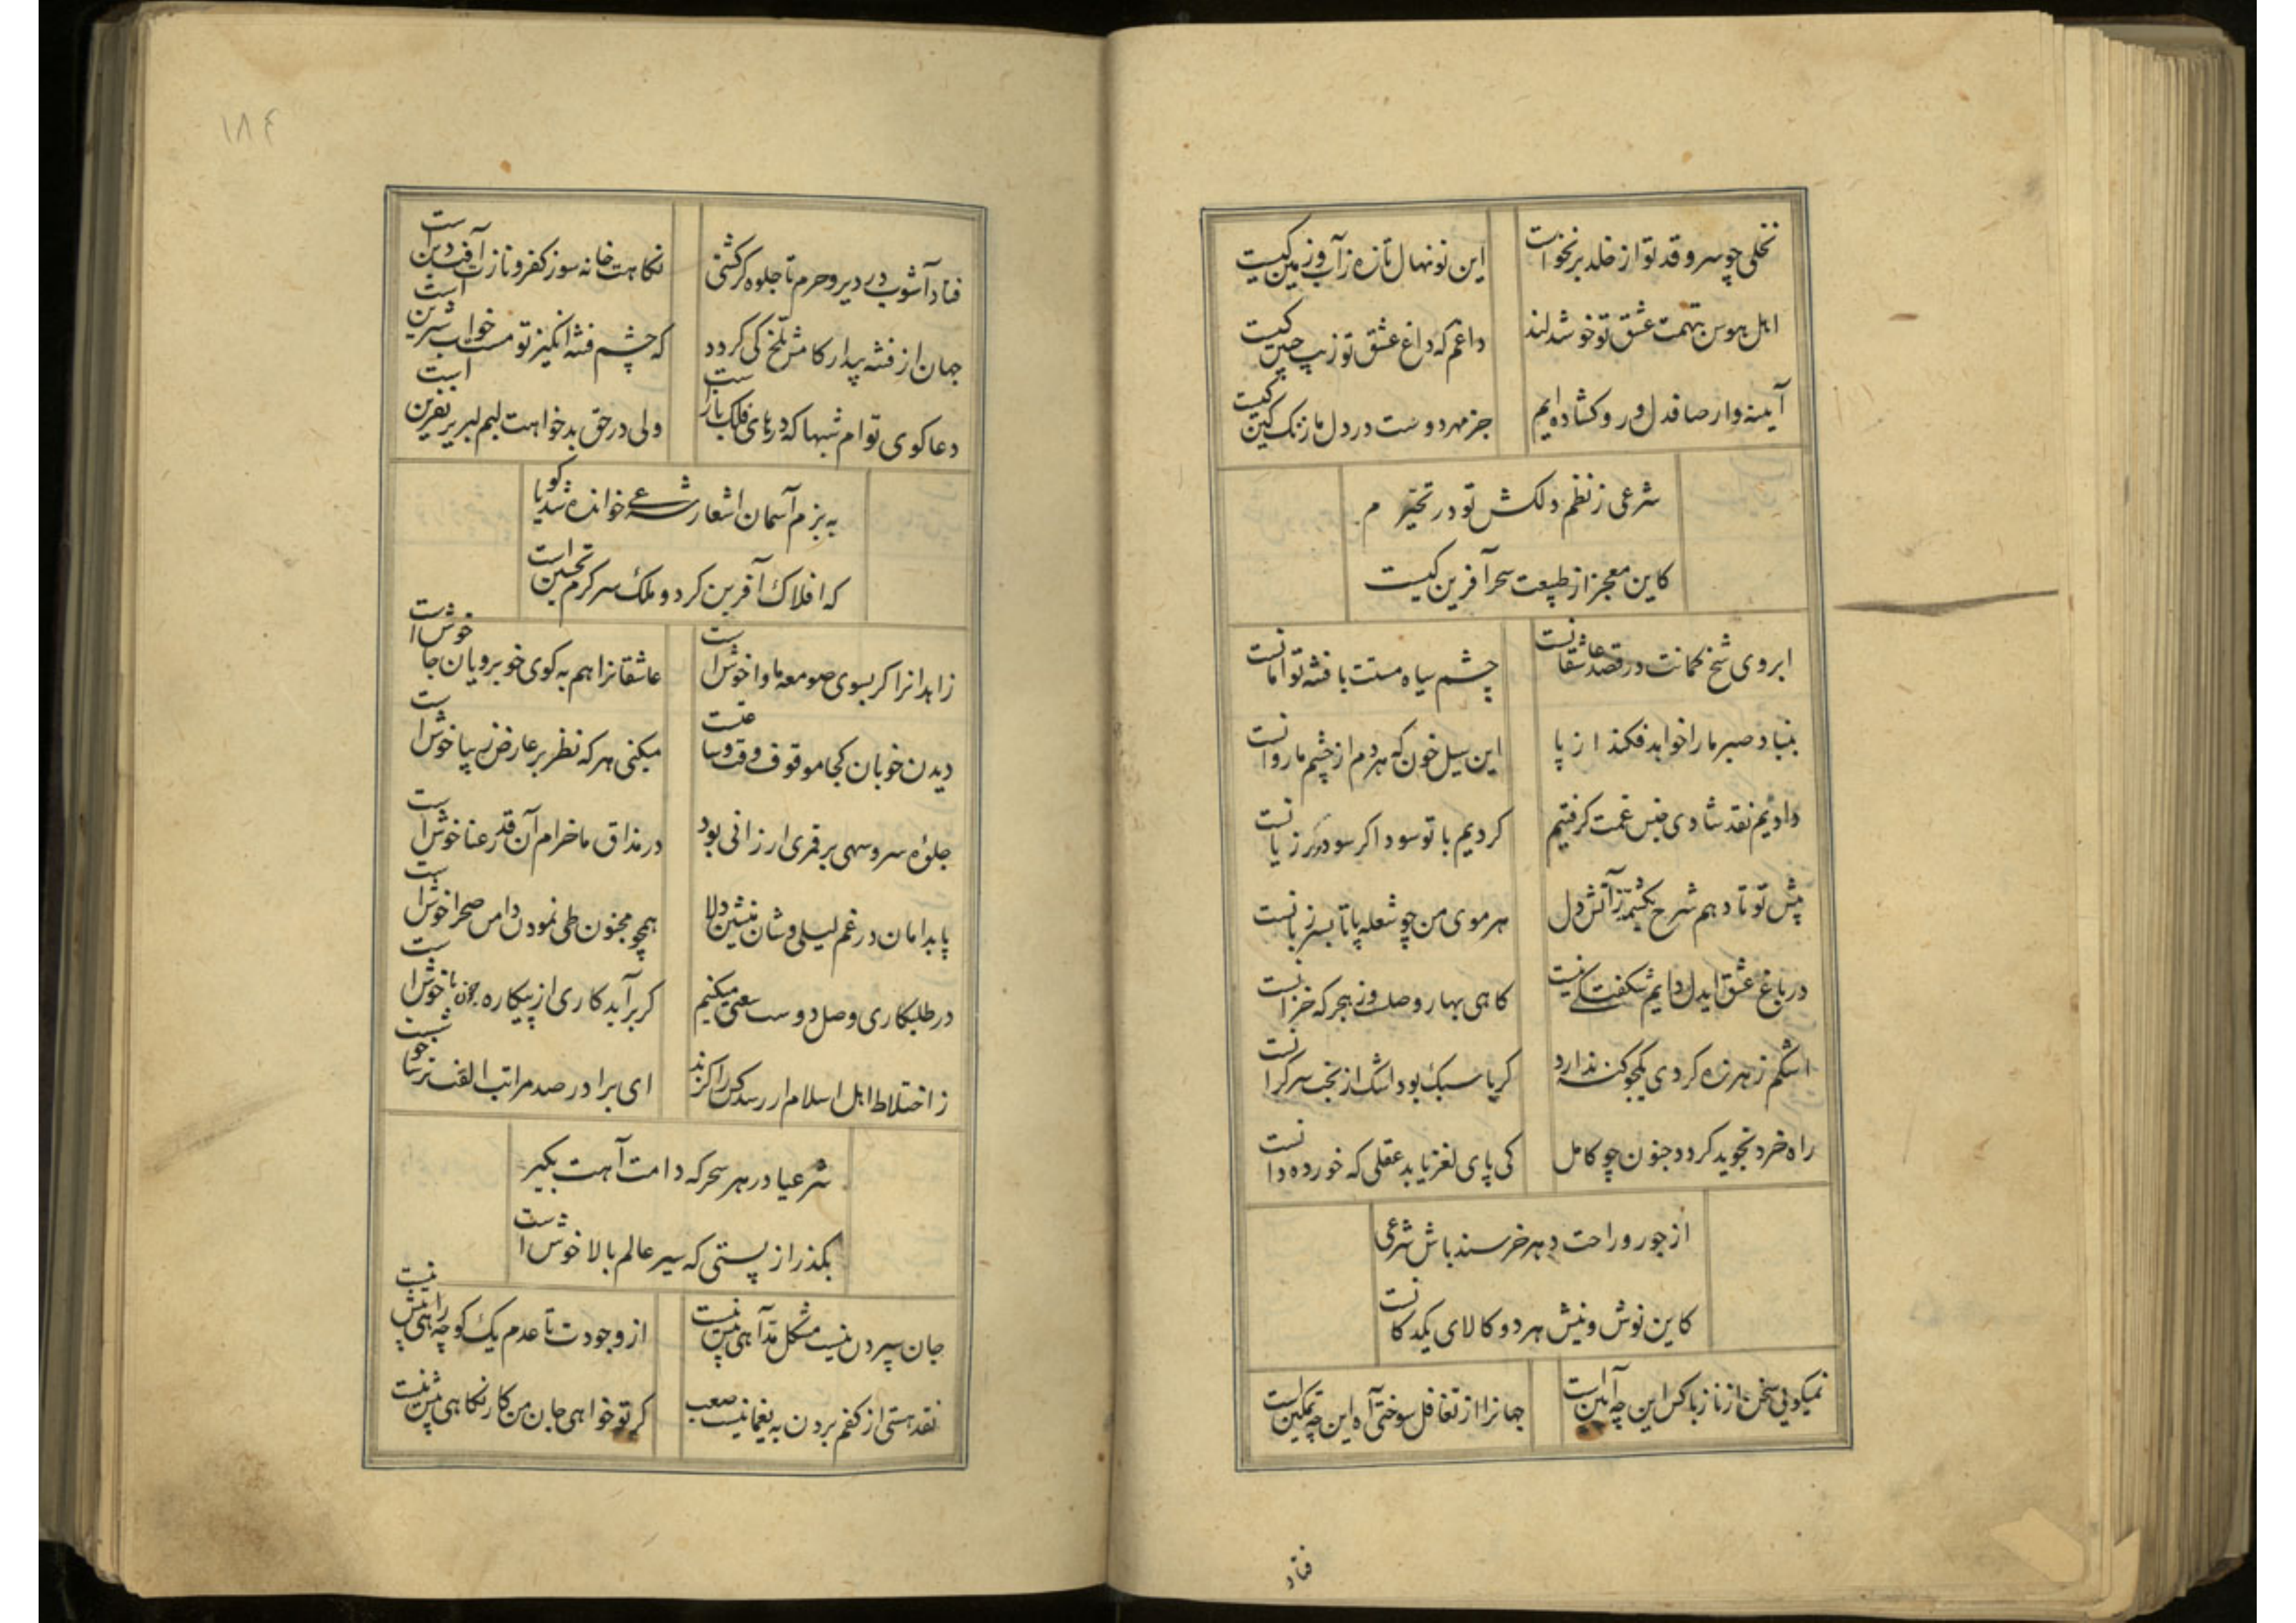 نخلی چو سرو قد تو از خلد برنخواست
این نونهال تازه ز آب و زمین کیست
اهل هوس بتهمت عشق تو خوشدلند
داغم که داغ عشق تو زیب جبین کیست
آیینه وار صافدل و رو کشاده ایم
جز مهر دوست در دل ما زنک کین کیست
شرعی ز نظم دلکش تو در تحیرم
کاین معجز از طبیعت سحر آفرین کیست
ابروی شخ کمانت در قصد عاشقانست
چشم سیاه مستت با فتنه توامانست
بنیاد صبر ما را خواهد فکند از پا
این سیل خون که هر دم از چشم ما روانست
دادیم نقد شادی جنس غمت کرفتیم
کردیم با تو سودا کر سود و کر زیانست
پیش تو تا دهم شرح یکشمه ز آتش دل
هر موی من چو شعله پا تا بسر زبانست
در باغ عشق ایدل دایم شکفتکی نیست
کاهی بهار وصلست و ز هجر که خزانست
اشکم ز هرزه کردی یکجو کنه ندارد
کر پا سبک بود اشک از بخت سرکرانست
راه خرد نجوید کردد جنون چو کامل
کی پای لغز یابد عقلی که خورده دانست
از جور و راحت دهر خرسند باش شرعی
کاین نوش و نیش هر دو کالای یکدکانست
نمیکویی سخن از ناز با کس این چه آیین است
جهانرا از تغافل سوختی آه این چه تمکین است
فتاد
۱۸۴
فتاد آشوب در دیر و حرم تا جلوه کر کشتی
نکاهت خانه سوز کفر و نازت آفت دین است
جهان از فتنه بیدار کامش تلخ کی کردد
که چشم فتنه انکیز تو مست خواب شیرین است
دعا کوی توام شبها که درهای فلک باز است
ولی در حق بدخواهت لبم لبریز نفرین است
به بزم آسمان اشعار شرعی خوانده شد کویا
که افلاک آفرین کرد و ملک سر کرم تحسین است
زاهدانرا کر بسوی صومعه ماوا خوش است
عاشقانرا هم به کوی خوبرویان جا خوش است
دیدن خوبان کجا موقوف وقت و ساعتست
میکنی هر که نظر بر عارض زیبا خوش است
جلوه سرو سهی بر قمری ارزانی بود
در مذاق ما خرام آن قد رعنا خوش است
پا بدامان در غم لیلی وشان منشین دلا
همچو مجنون طی نمودن دامن صحرا خوش است
در طلبکاری وصل دوست سعی میکنیم
کر برآید کاری از پیکاره چون ما خوش است
ز اختلاط اهل اسلام ار رسد کس را کزند
ای برادر صد مراتب الفت ترسا خوشست
شرعیا در هر سحر که دامت آهت بکیر
بکذر از پستی که سیر عالم بالا خوش است
جان سپردن نیست مشکل مد آهی بیش نیست
از وجودت تا عدم یک کوچه راهی بیش نیست
نقد هستی از کفم بردن به یغما نیست صعب
کر تو خواهی جان من کار نکاهی بیش نیست